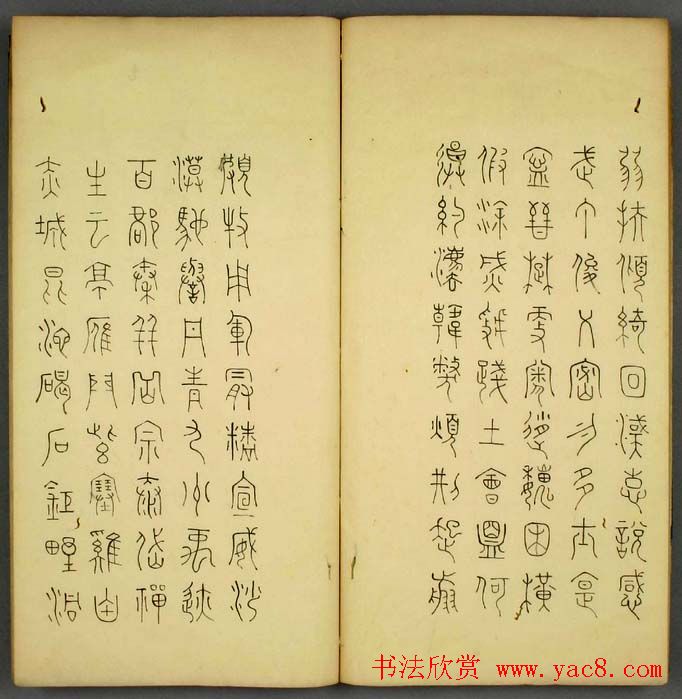 弱扶傾綺回漢惠說感
武丁俊乂密勿多士是
寧晉楚更霸趙魏困橫
假涂滅虢踐土會盟何
遵約灋韓弊煩刑起翦
頗牧用軍最精宣威沙
漠馳譽丹青九州禹迹
百郡秦并岳宗泰岱禪
主云亭雁門紫塞雞田
赤城昆池碣石鉅野洞
书法欣赏 www.yac8.com